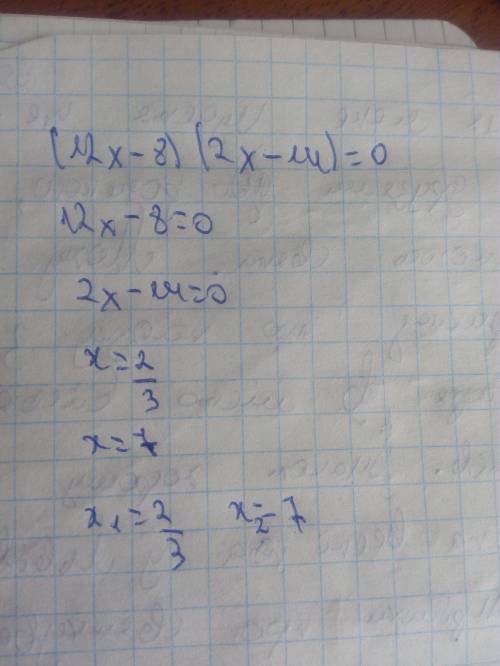 (12x-8)(2x-14)=0
12x-8=0
2x-14=0
x=2/3
x=7
x₁=2/3 x₂=7